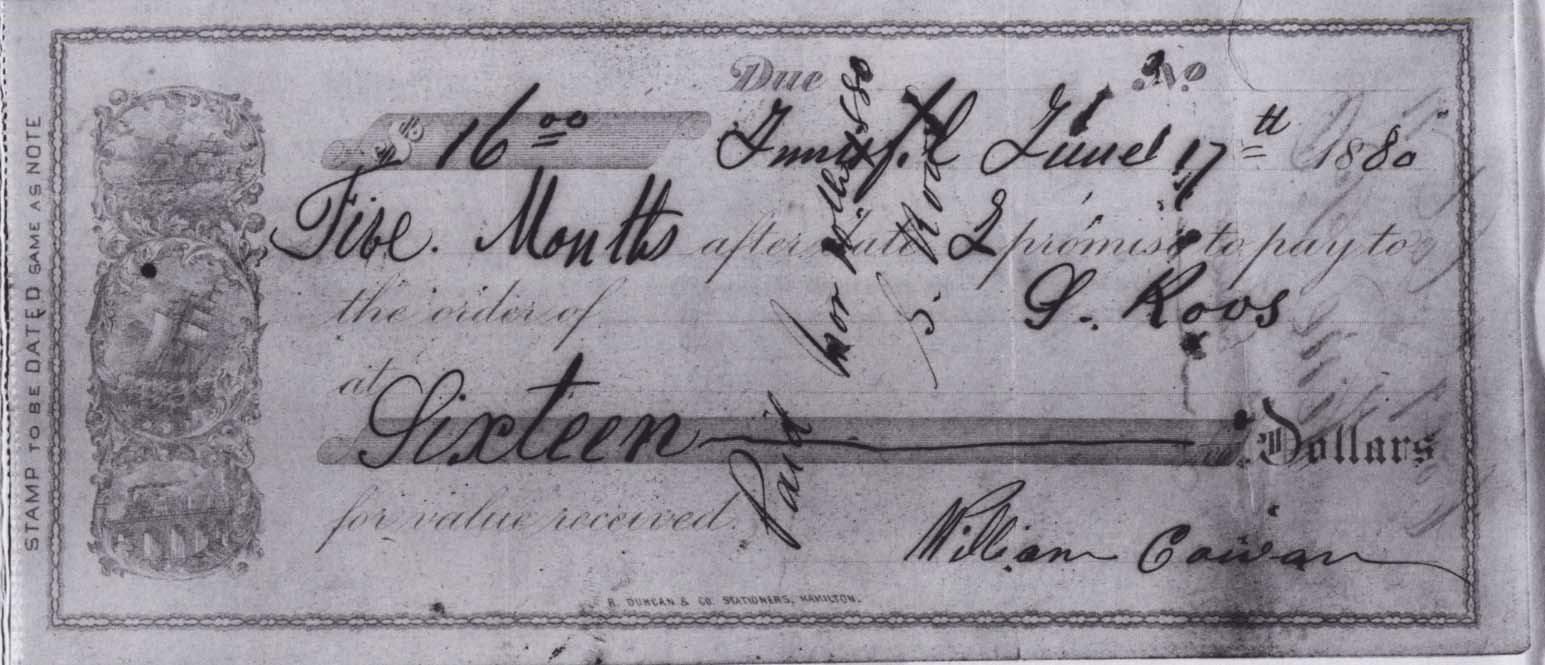 STAMP TO BE DATED SAME AS NOTE
Due No
$ 16 00 Innisfil June 17th 1880
Five Months after date I promise to pay to
the order of S. Roos
at
Sixteen Dollars
for value received.
William Cowan
Paid Nov 1880
S. Roos
R. DUNCAN & CO. STATIONERS, HAMILTON.